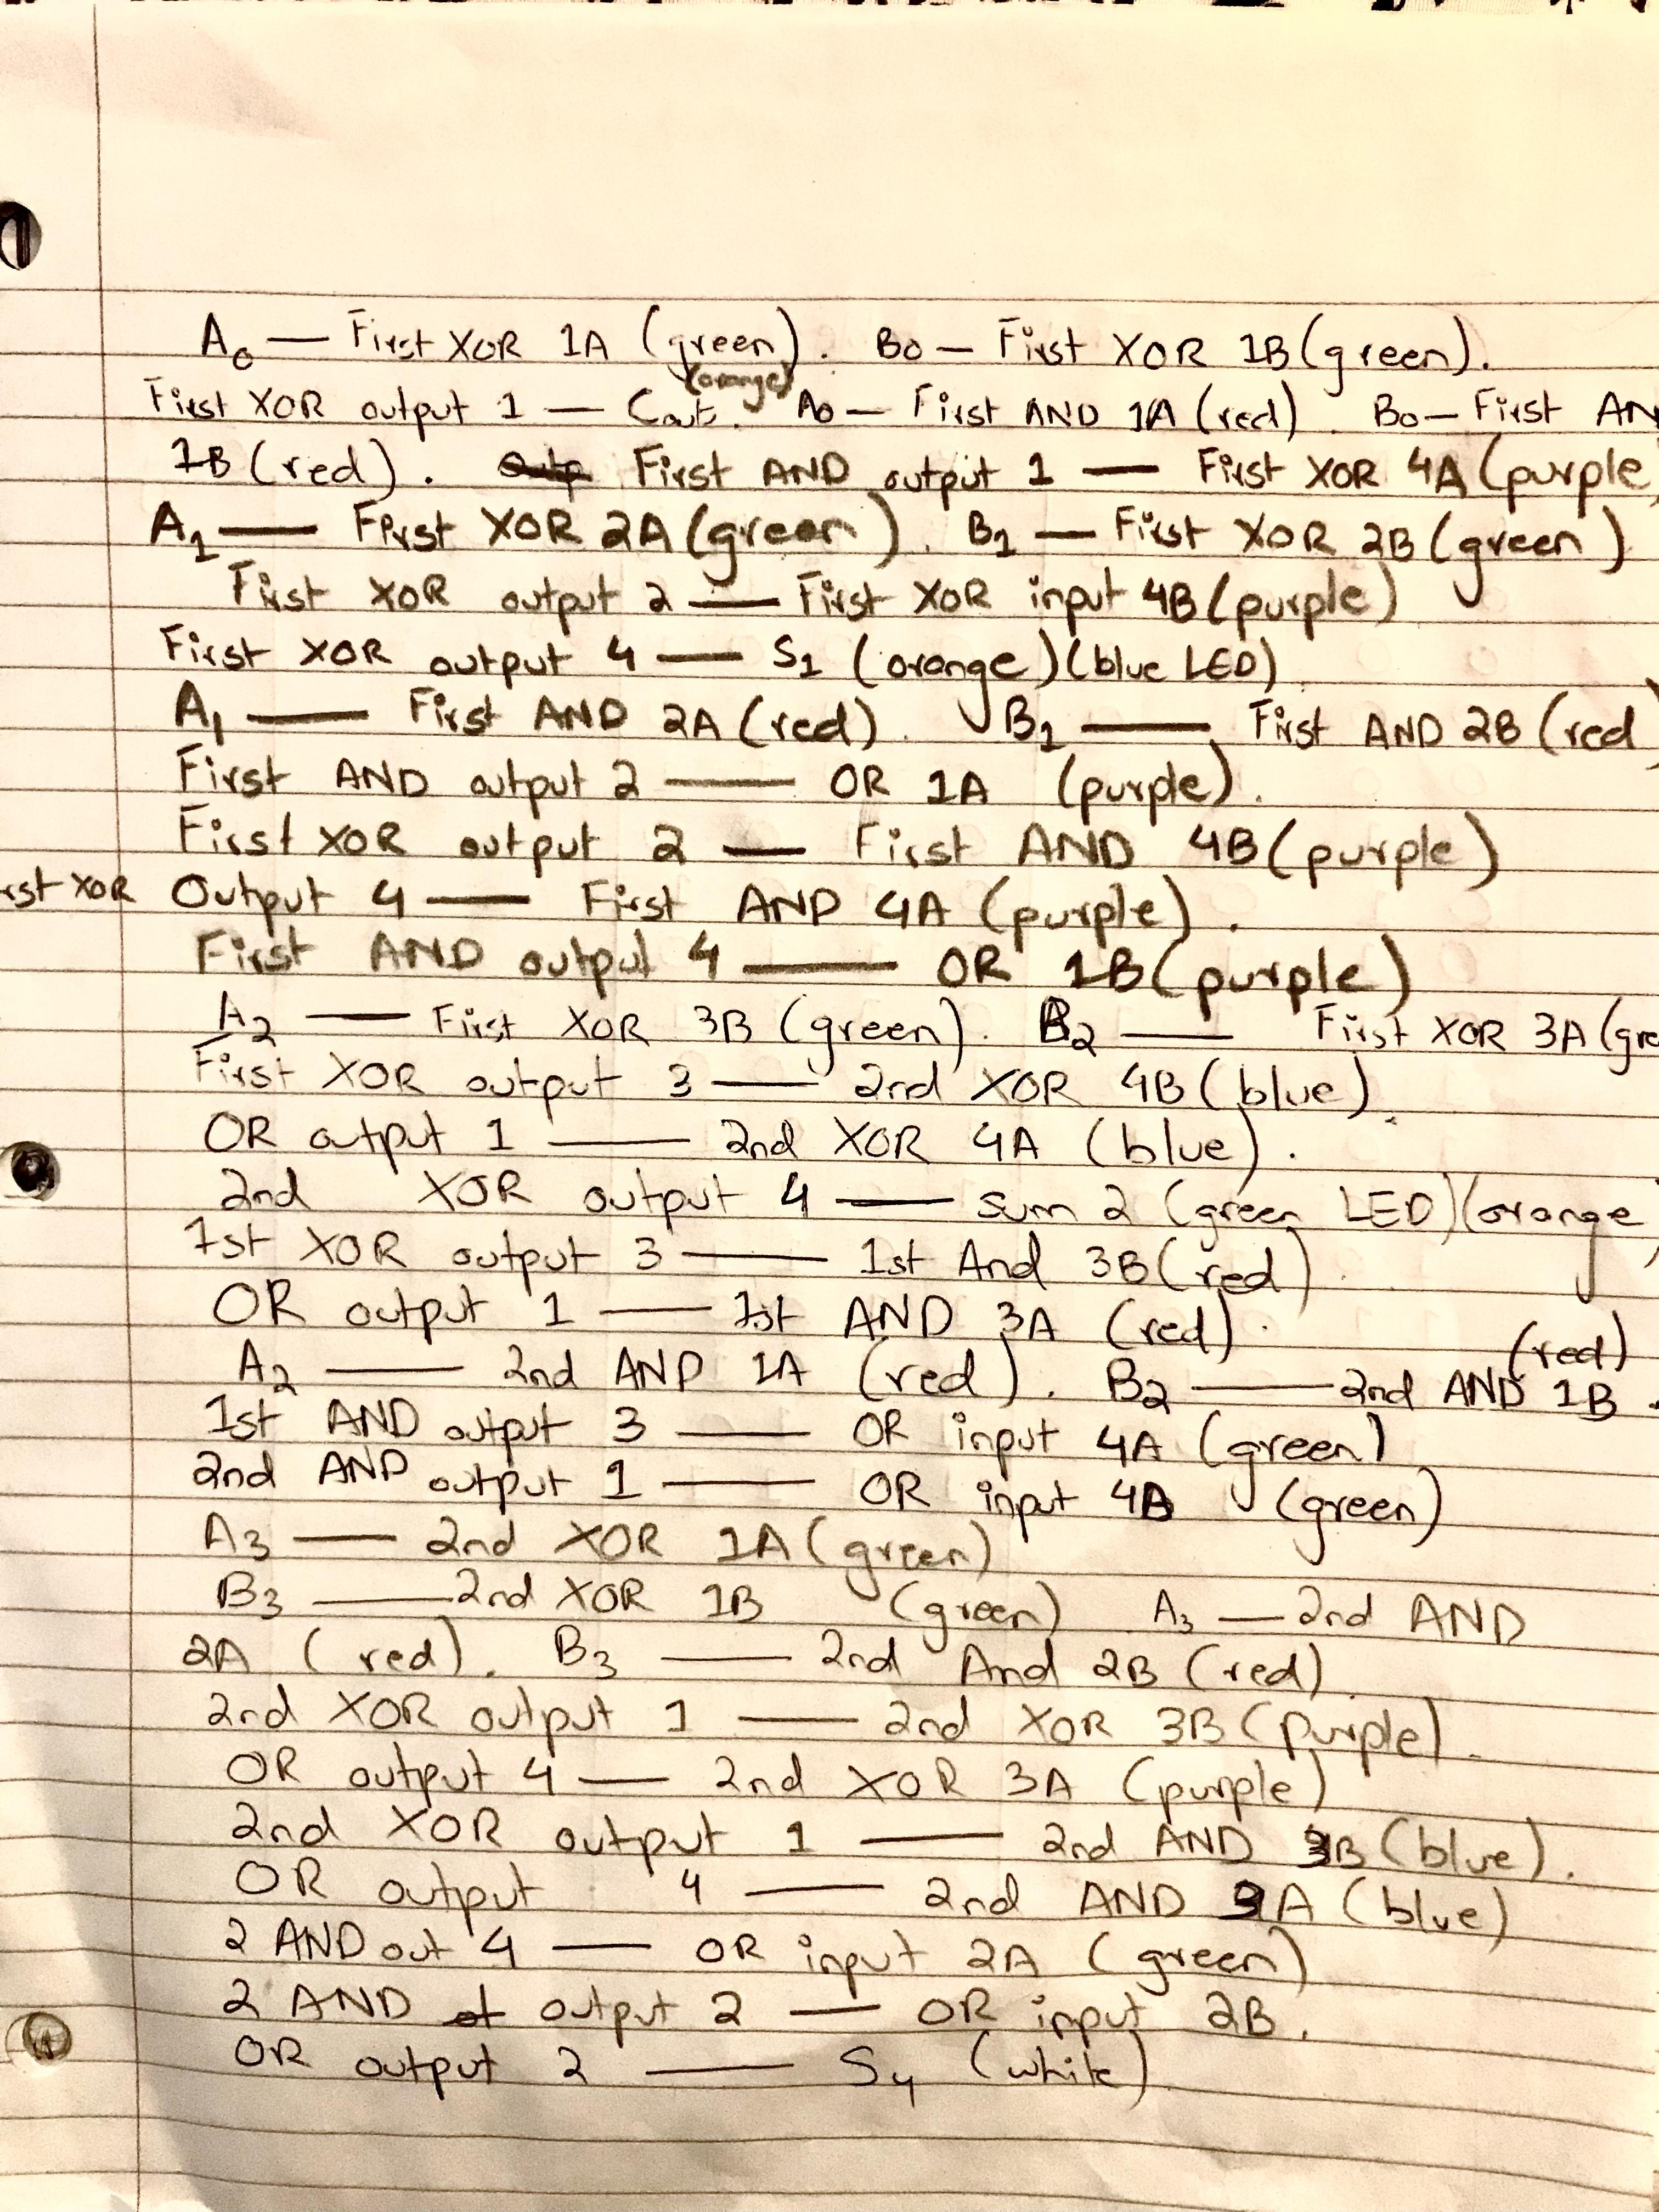 A0 — First XOR 1A (green). B0 — First XOR 1B (green).
(orange)
First XOR output 1 — Cout. A0 — First AND 1A (red). B0 — First AN
1B (red). First AND output 1 — First XOR 4A (purple
A1 — First XOR 2A (green). B1 — First XOR 2B (green)
First XOR output 2 — First XOR input 4B (purple)
First XOR output 4 — S1 (orange) (blue LED)
A1 — First AND 2A (red). B1 — First AND 2B (red)
First AND output 2 — OR 1A (purple).
First XOR output 2 — First AND 4B (purple)
rst XOR Output 4 — First AND 4A (purple).
First AND output 4 — OR 1B (purple)
A2 — First XOR 3B (green). B2 — First XOR 3A (gre
First XOR output 3 — 2nd XOR 4B (blue).
OR output 1 — 2nd XOR 4A (blue).
2nd XOR output 4 — Sum 2 (green LED) (orange)
1st XOR output 3 — 1st And 3B (red).
OR output 1 — 1st AND 3A (red).
A2 — 2nd AND 1A (red). B2 — 2nd AND 1B (red).
1st AND output 3 — OR input 4A (green)
2nd AND output 1 — OR input 4B (green)
A3 — 2nd XOR 1A (green)
B3 — 2nd XOR 1B (green) A3 — 2nd AND
2A (red). B3 — 2nd And 2B (red).
2nd XOR output 1 — 2nd XOR 3B (purple).
OR output 4 — 2nd XOR 3A (purple)
2nd XOR output 1 — 2nd AND 3B (blue).
OR output 4 — 2nd AND (blue)
2 AND out 4 — OR input 2A (green)
2 AND output 2 — OR input 2B.
OR output 2 — S4 (white)